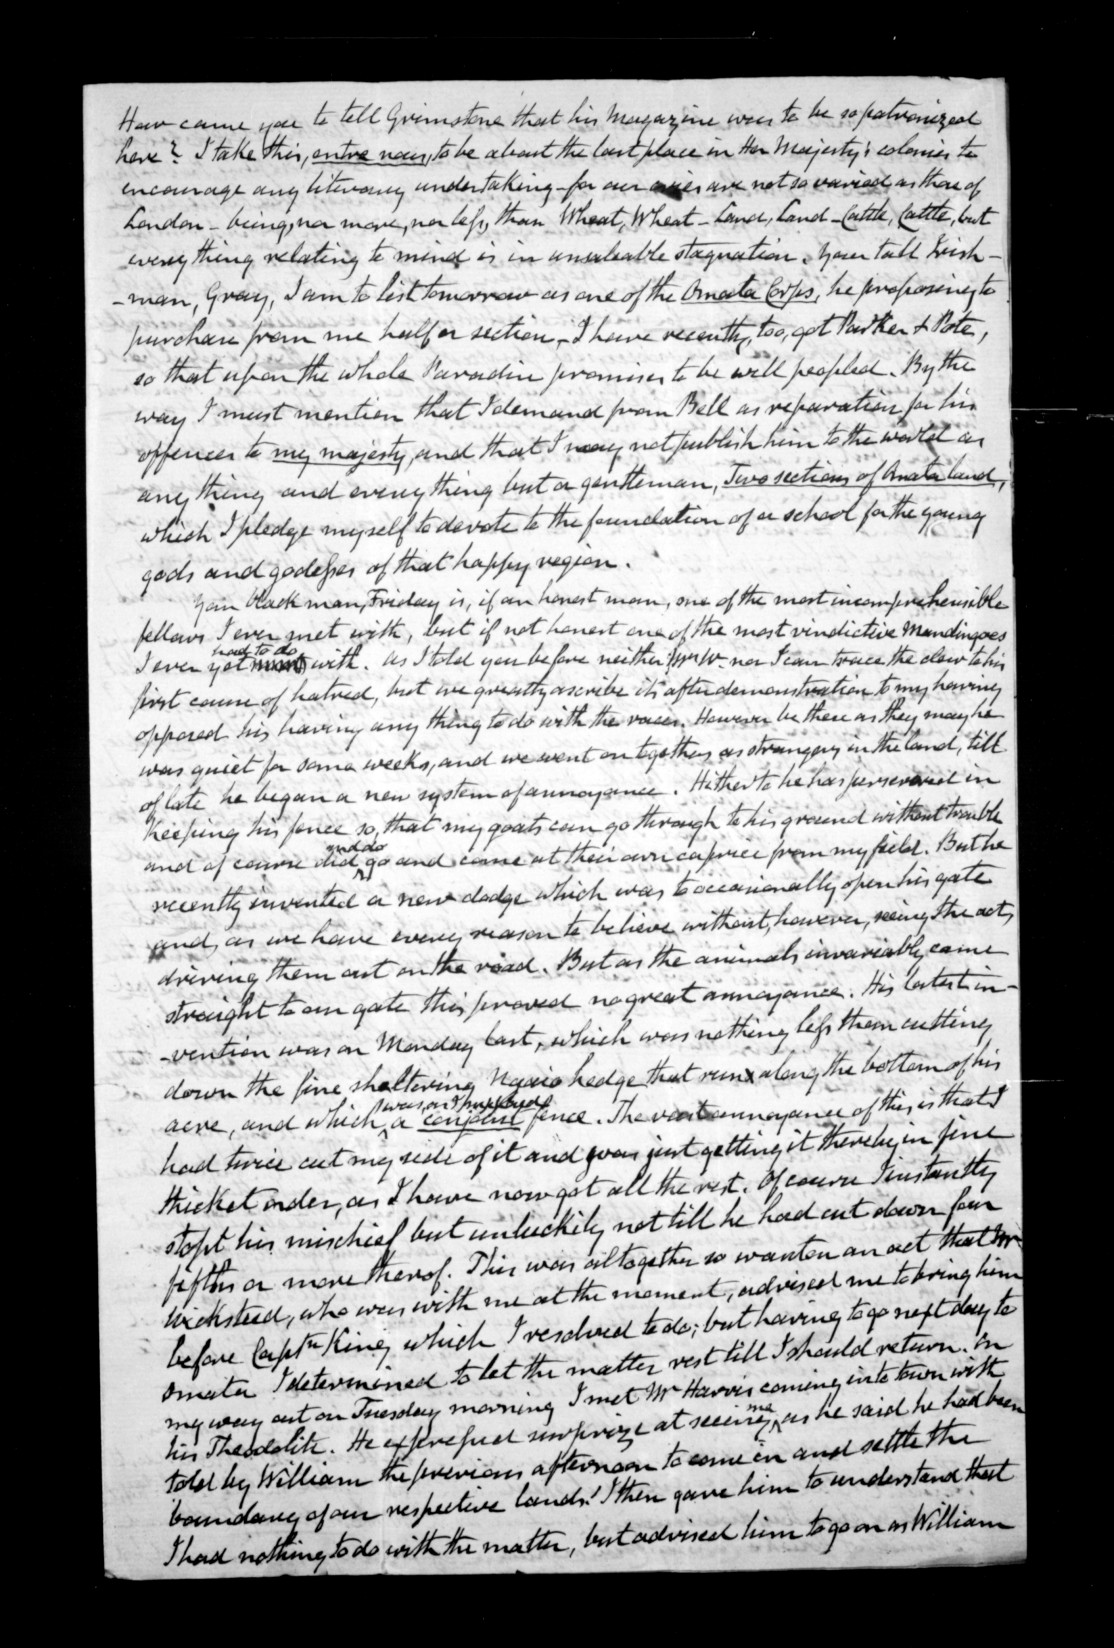 How came you to tell Grimstone that his Magazine was to be so patronized
here? I take this, entre nous, to be about the last place in Her Majesty's colonies to
encourage any literary undertaking - for our cries are not so varied as those of
London - being, nor more, nor less, than Wheat, Wheat - Land, Land - Cattle, Cattle, but
every thing relating to mind is in unsaleable stagnation. Your tall Irish-
-man, Gray, I am to list tomorrow as one of the Omata Corps, he proposing to
purchase from me half a section - I have recently, too, got Parker & Pote,
so that upon the whole Paradise promises to be well peopled. By the
way I must mention that I demand from Bell as reparation for his
offences to my majesty, and that I may not publish him to the world as
any thing and every thing but a gentleman, Two sections of Omata land,
which I pledge myself to devote to the foundation of a school for the young
gods and godesses of that happy region.
Your black man, Friday is, if an honest man, one of the most incomprehensible
fellows I ever met with, but if not honest one of the most vindictive Mandingoes
I ever yet had to do with. As I told you before neither Mr W. nor I can trace the clew to his
first cause of hatred, but we greatly ascribe its after demonstration to my having
opposed his having any thing to do with the races. However be these as they may he
was quiet for some weeks, and we went on together as strangers in the land, till
of late he began a new system of annoyance. Hitherto he has persevered in
keeping his fence so, that my goats can go through to his ground without trouble
and of course did and do go and come at their own caprice from my field. But he
recently invented a new dodge which was to occasionally open his gate
and, as we have every reason to believe without, however, seeing the act,
driving them out on the road. But as the animals invariably came
straight to our gate this proved no great annoyance. His latest in-
-vention was on Monday last, which was nothing less than cutting
down the fine sheltering Ngaio hedge that runs along the bottom of his
acre, and which was, or I supposed a conjoint fence. The vast annoyance of this is that I
had twice cut my side of it and was just getting it thereby in fine
thicket order, as I have now got all the rest. Of course I instantly
stopt his mischief but unluckily not till he had cut down four
fifths or more therof. This was altogether so wanton an act that Mr
Wicksteed, who was with me at the moment, advised me to bring him
before Captn King which I resolved to do; but having to go next day to
Omata I determined to let the matter rest till I should return. On
my way out on Tuesday morning I met Mr Harris coming into town with
his Theodolite. He expressed surprize at seeing me, as he said he had been
told by William the previous afternoon to come in and settle the
boundary of our respective lands! I then gave him to understand that
I had nothing to do with the matter, but advised him to go on as William